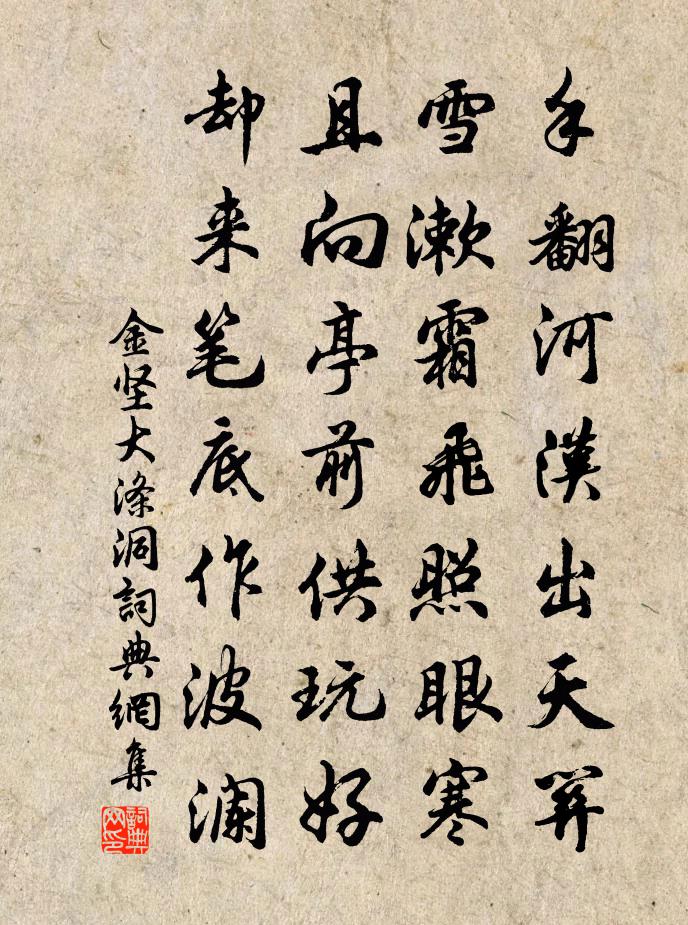 手翻河漢出天关
雪漱霜飛照眼寒
且向亭前供玩好
却来笔底作波澜
金坚大涤洞詞典網集
詞典网印